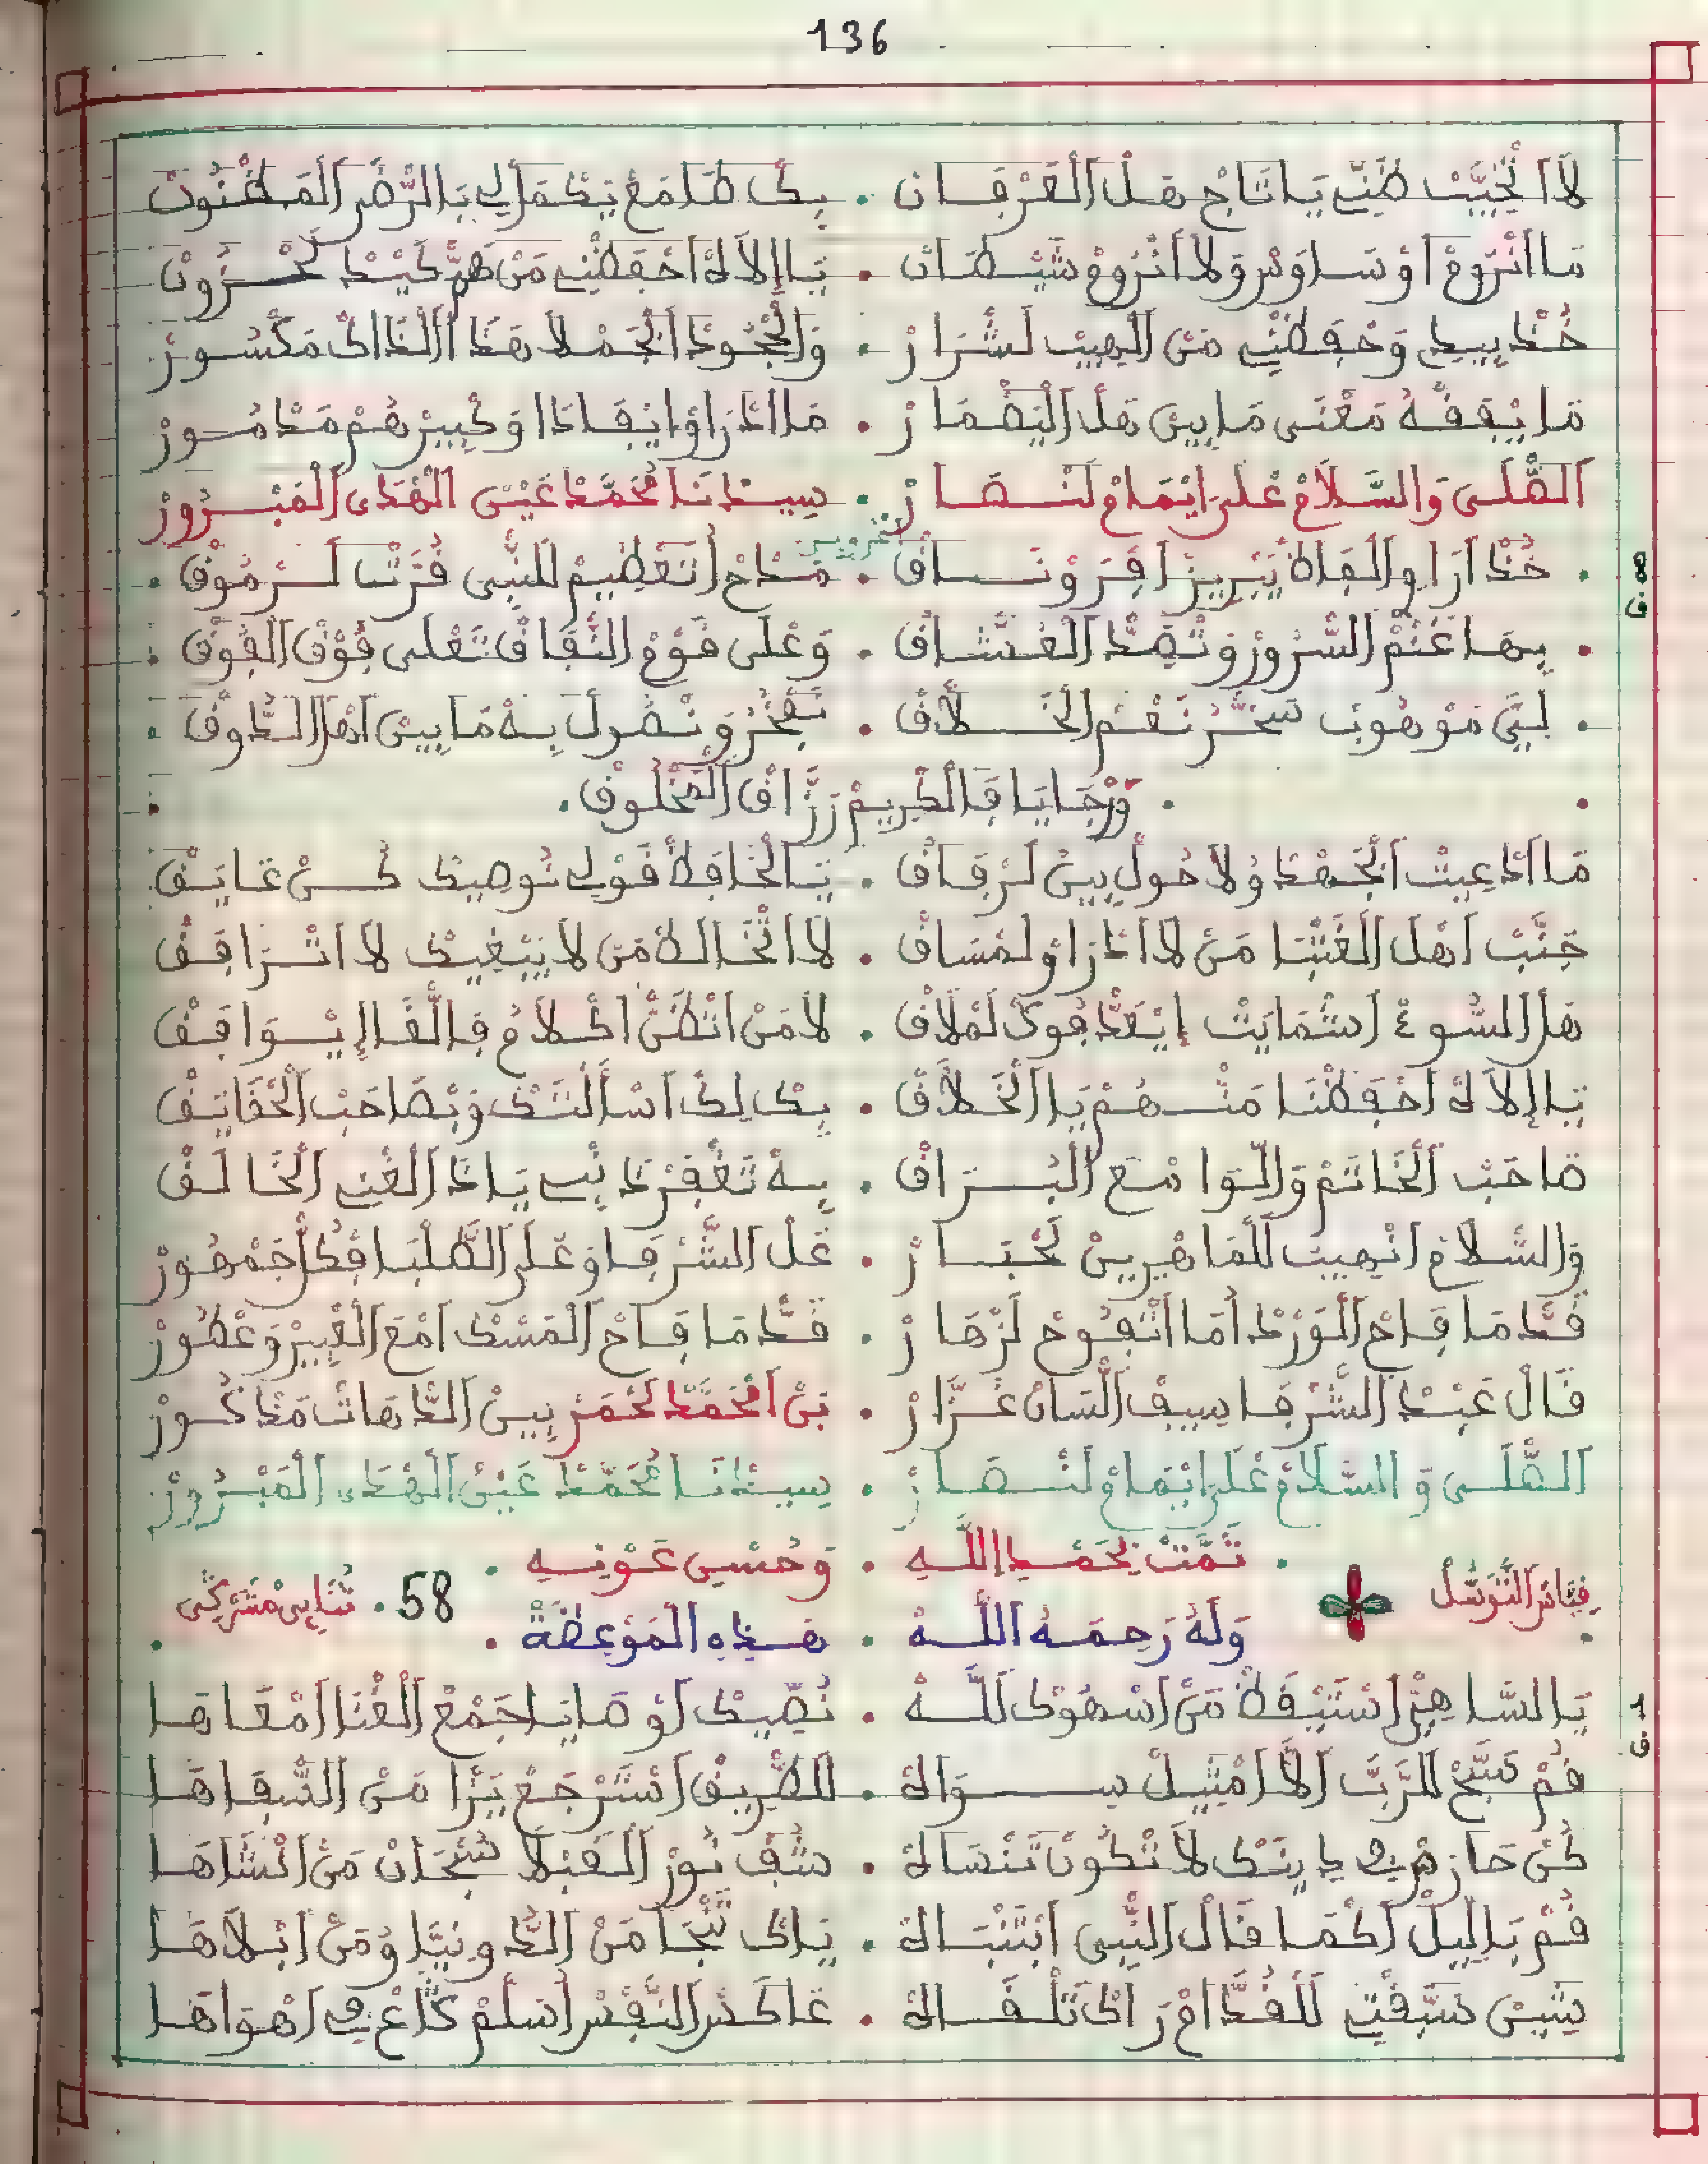 136
لَا اتْخَيَّبْ ظَنِّي يَا تَاجْ هَلْ الْعَرْفَانْ . بِكْ طَامَعْ يَكْمَالِي بَالرّْضَى الْمَضْنُونْ
مَا انْرُومْ اوْسَاوَسْ وَلَا انْرُومْ شَيْطَانْ . يَا إِلَاهْ احْفَظْنِي مَنْ هَمّْ كَيْدْ لَحْزُونْ
خُذْ بِيدِي وَحْفَظْنِي مَنْ الْهِيبْ لَشْرَارْ . وَالْجْحُودْ الْجَمْلَا هَذَا الذَّاكْ مَكْسُورْ
مَا يْفَقْهُ مَعْنَى مَا بِينْ هَلْ الْيَضْمَارْ . مَا ادْرَاوْا يْفَادَا وَكْبِيرْهُمْ مَدْمُورْ
الصّْلَى وَالسَّلَامْ عْلَى ايْمَامْ لَنْصَارْ . سِيدْنَا مُحَمَّدْ عَيْنْ الْهْدَى الْمَبْرُورْ
خُذْ ارَاوِي الْفَاظْ يَبْرِيزْ افِرَوْنَسَاقْ . مَدَّاحْ ابْتَعْظِيمْ للنّْبِي فُرْتْ لَرْمُوقْ
بِهَا غْنَمْ السّْرُورْ وَتْصَدْ الْعُشَّاقْ . وَعْلَى قَوْمْ النّْفَاقْ تَعْلَى فُوقْ الْفُوقْ
لِيَّ مَوْهُوبْ سَخَّرْ نَعْمْ الْخَلَّاقْ . نَفْخَرْ وَنْصُولْ بِهْ مَا بِينْ اهْلْ الدُّوقْ
وَرْجَايَا فَالْكْرِيمْ رَزَّاقْ الْمَخْلُوقْ
مَا ادْعِيتْ الْجَهْدْ وُلَا حُولْ بِينْ لَرْفَاقْ . يَا الْحَافَظْ قَوْلِي نُوصِيكْ كُنْ عَايَقْ
جَنَّبْ اهْلْ الْغَتْبَا مَنْ لَا ادْرَاوْ لَمْسَاقْ . لَا اتْخَالَطْ مَنْ لَا يَبْغِيكْ لَا اتْرَافَقْ
هَلْ السُّوءْ اشْمَايَتْ إِيْعَدّْبُوكْ لَمْلَاقْ . لَا مَنْ اتْظَنّْ اكْلَامُ فَاللّْقَا إِيْوَافَقْ
يَا إِلَاهْ احْفَظْنَا مَنْهُمْ يَا الْخَلَّاقْ . بِكْ لِكْ اسْأَلْتَكْ وَبْصَاحَبْ الْحْقَايَقْ
صَاحَبْ الْخَاتَمْ وَاللّْوَا مْعَ الْبُرَاقْ . بِهْ تَغْفَرْ دَنْبِي يَا ذَا الْغْنِي الْخَالَقْ
وَالسّْلَامْ انْهِيبْ للْمَاهْرِينْ لَحْبَارْ . عْلَى الشّْرْفَا وَعْلَى الطَّلْبَا فْكُلّْ جَمْهُورْ
قَدّْ مَا فَاحْ الْوَرْدْ أَمَا اتْفُوحْ لَزْهَارْ . قَدّْ مَا فَاحْ الْمَسْكْ امْعَ الْعْبِيرْ وَعْطُورْ
قَالْ عَبْدْ الشّْرْفَا سِيفْ اللّْسَانْ عَزَّارْ . بَنْ امْحَمَّدْ لَحْمَرْ بِينْ الدّْهَاتْ مَذْكُورْ
الصّْلَى وَالسّْلَامْ عْلَى ايْمَامْ لَنْصَارْ . سِيدْنَا مُحَمَّدْ عَيْنْ الْهْدَى الْمَبْرُورْ
تَمَّتْ بِحَمْدِ اللَّهِ . وَحُسْنِ عَوْنِهِ
قِيَاسْ التَّوَسُّلْ
وَلَهُ رَحِمَهُ اللَّهْ . هَذِهِ الْمَوْعِظَةْ . 58 . ثُنَايِي مْشَرْكِي
يَا السَّاهِي اسْتَيْقَظْ مَنْ اسْهُوكْ لَلَّهْ . نُصِّيكْ اوْصَايَا جَمْعْ الْغْنَا امْعَاهَا
قُمْ سَبَّحْ لَلرَّبّْ الَّا امْثِيلْ سِوَاهْ . لَلطّْرِيقْ اسْتَرْجَعْ بَرَّا مَنْ السّْفَاهَا
كُنْ حَازَمْ فِي دِينَكْ لَا تْكُونْ تَنْسَاهْ . شُفْ نُورْ الْقَبْلَا سُبْحَانْ مَنْ انْشَاهَا
قُمْ بَاللِّيلْ اكْمَا قَالْ النّْبِي ابْتَنْبَاهْ . يَاكْ تَنْجَا مَنْ الدُّونْيَا وُمَنْ ابْلَاهَا
شِيئْ سَبَّقْتِ لَلْقُدَّامْ رَاكْ تَلْقَاهْ . عَاكَسْ النَّفْسْ اسْلَمْ كَدَّاعْ فِي اهْوَاهَا